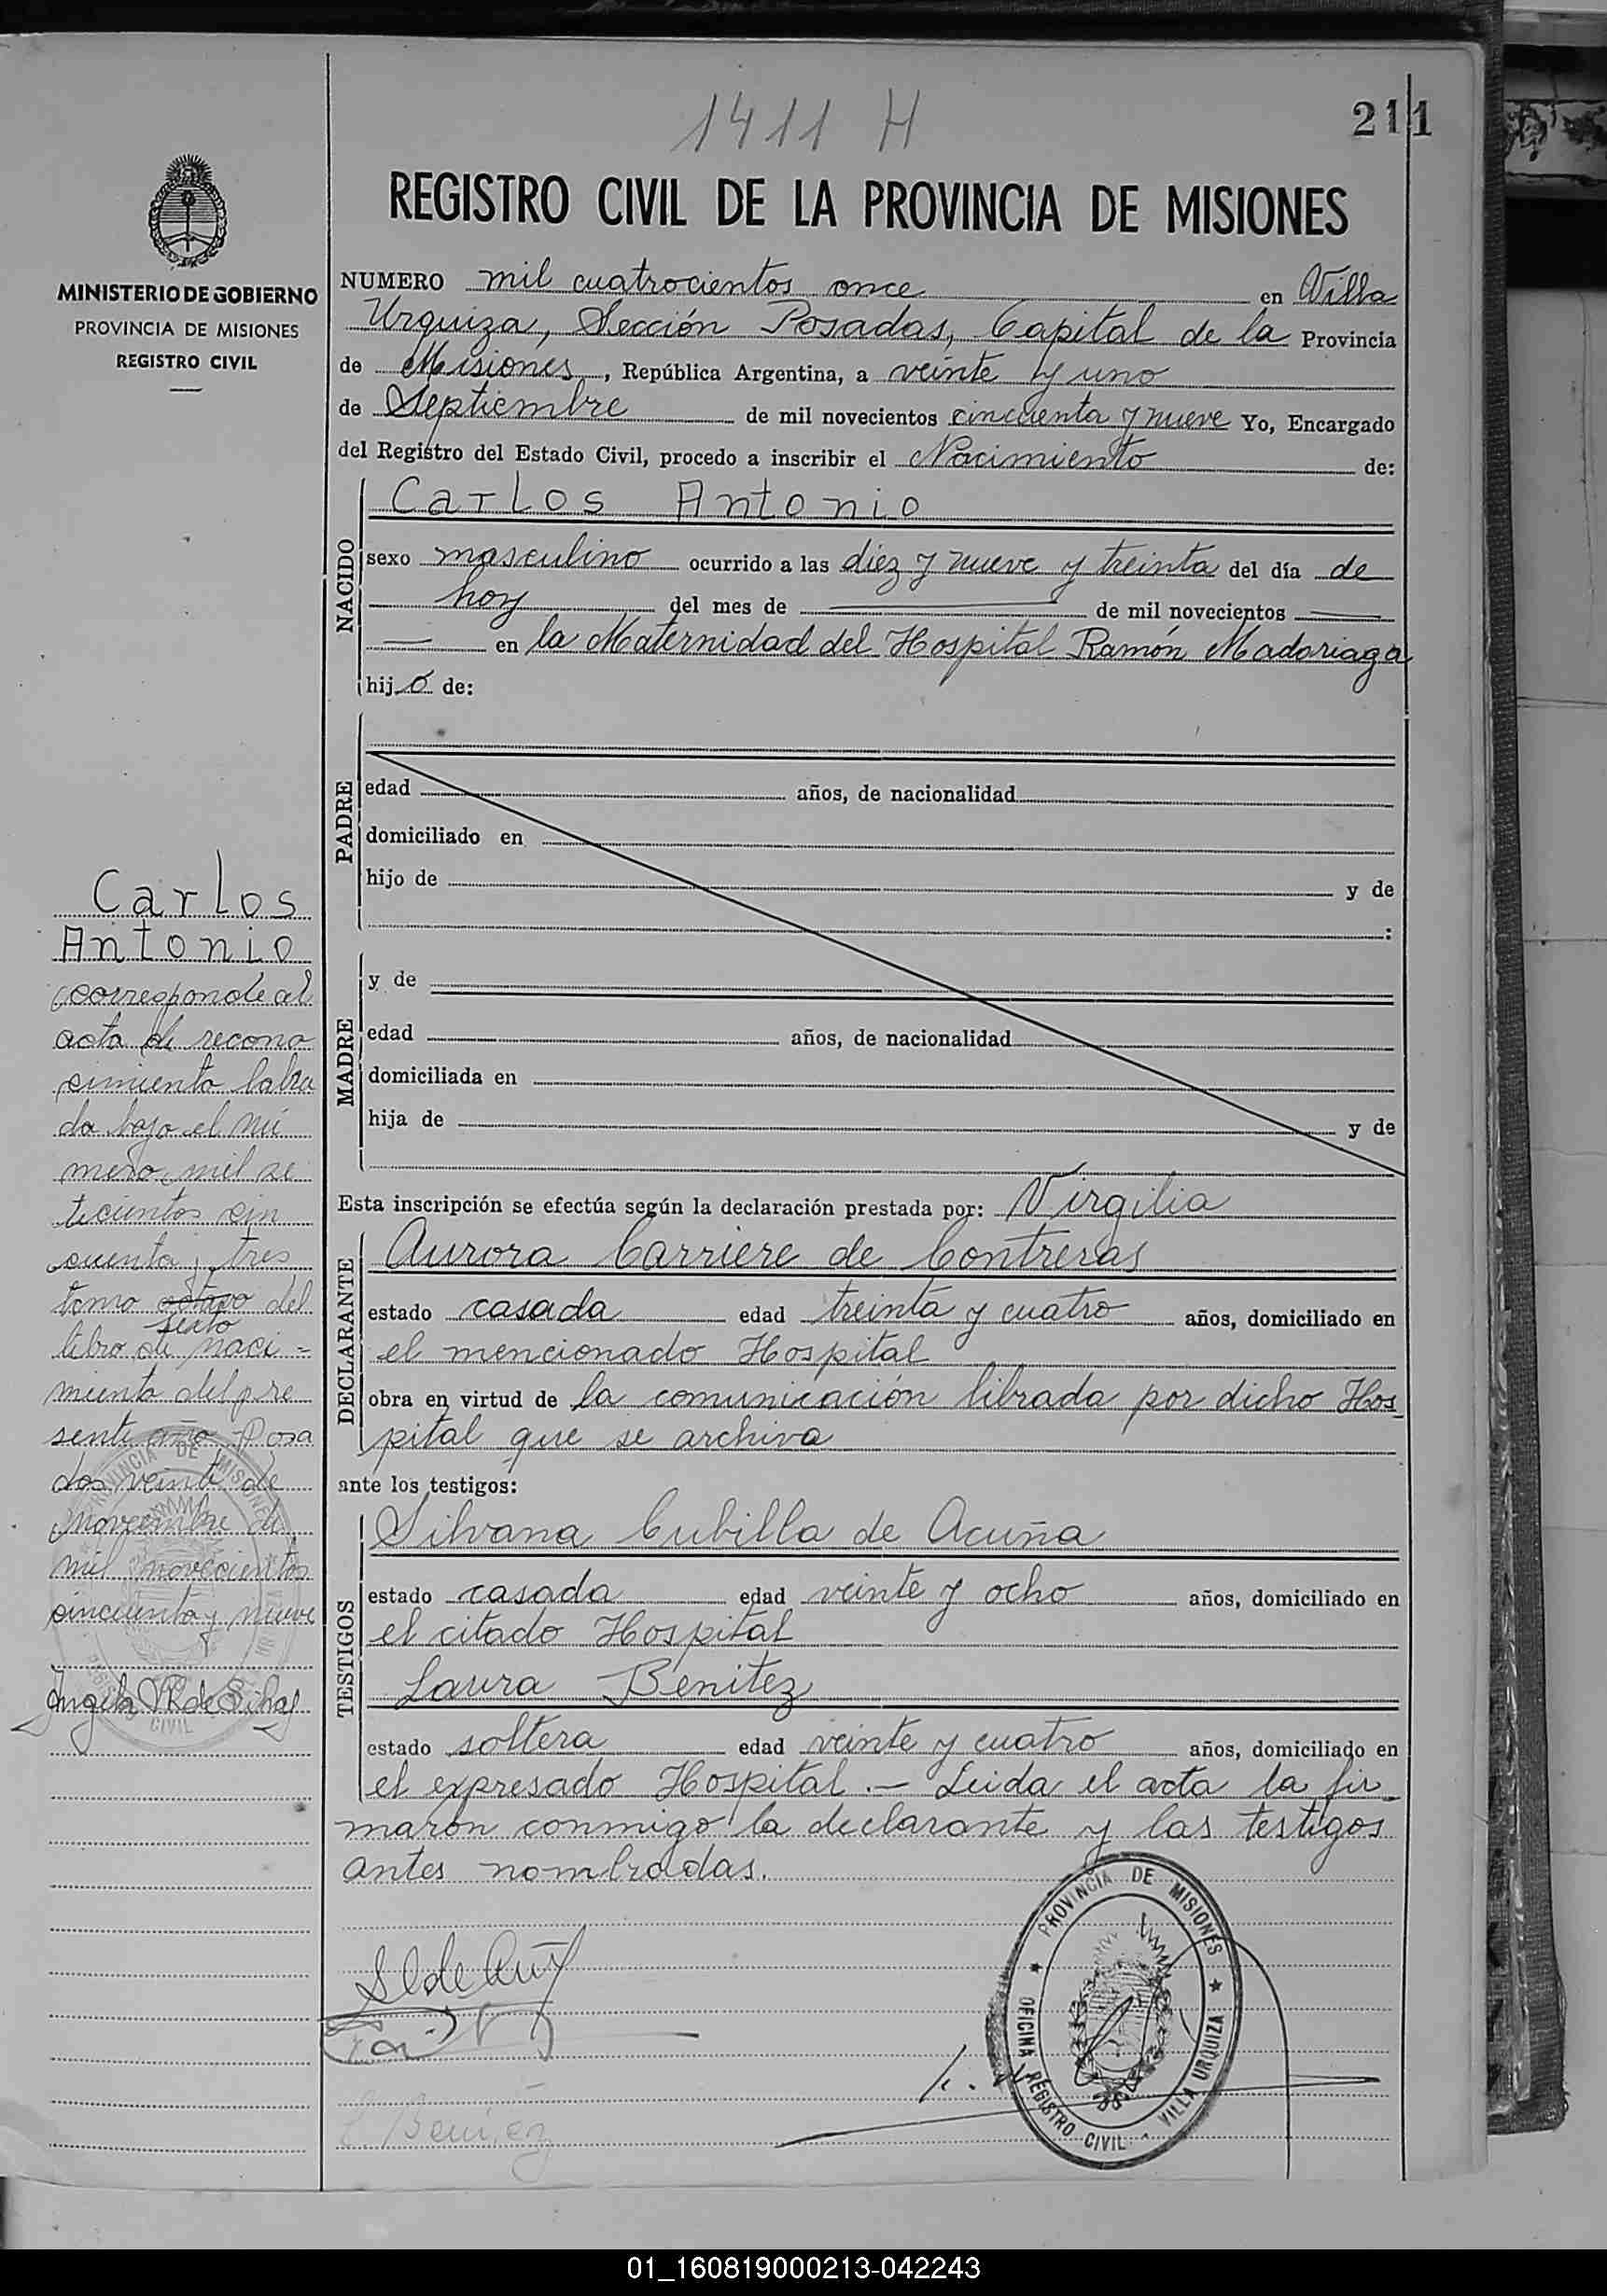 1411 H
211
REGISTRO CIVIL DE LA PROVINCIA DE MISIONES
MINISTERIO DE GOBIERNO
PROVINCIA DE MISIONES
REGISTRO CIVIL
NUMERO mil cuatrocientos once en Villa
Urquiza, Sección Posadas, Capital de la Provincia
de Misiones, República Argentina, a veinte y uno
de Septiembre de mil novecientos cincuenta y nueve Yo, Encargado
del Registro del Estado Civil, procedo a inscribir el Nacimiento de:
NACIDO
Carlos Antonio
sexo masculino ocurrido a las diez y nueve y treinta del día de
hoy del mes de — de mil novecientos —
— en la Maternidad del Hospital Ramón Madariaga
hijo de:
PADRE
edad años, de nacionalidad
domiciliado en
hijo de y de
:
MADRE
y de
edad años, de nacionalidad
domiciliada en
hija de y de
Esta inscripción se efectúa según la declaración prestada por: Virgilia
DECLARANTE
Aurora Carriere de Contreras
estado casada edad treinta y cuatro años, domiciliado en
el mencionado Hospital
obra en virtud de la comunicación librada por dicho Hos
pital que se archiva
ante los testigos:
TESTIGOS
Silvana Cubilla de Acuña
estado casada edad veinte y ocho años, domiciliado en
el citado Hospital
Laura Benitez
estado soltera edad veinte y cuatro años, domiciliado en
el expresado Hospital.— Leida el acta la fir
maron conmigo la declarante y las testigos
antes nombradas.
Carlos
Antonio
corresponde al
acta de recono
cimiento labra
da bajo el nú
mero mil se
tecientos cin
cuenta y tres
tomo octavo del
sexto
libro de naci=
miento del pre
sente año Posa
das veinte de
noviembre de
mil novecientos
cincuenta y nueve
PROVINCIA DE MISIONES
CIVIL
L Benitez
PROVINCIA DE MISIONES
OFICINA REGISTRO CIVIL - VILLA URQUIZA
01_160819000213-042243